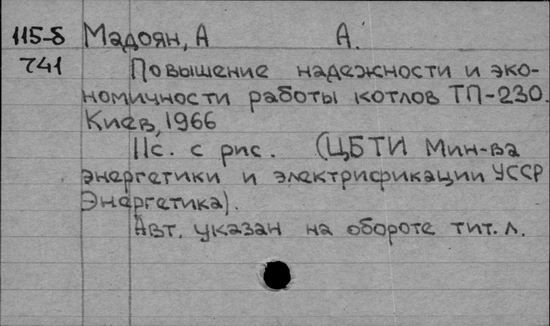 115-б Мадоян, А А.
741 Повышение надежности и эко-
номичности работы котлов ТП-230.
Киев, 1966
11с. с рис. (ЦБТИ Мин-ва
энергетики и электрификации УССР
Энергетика).
Авт. указан на обороте тит. л.